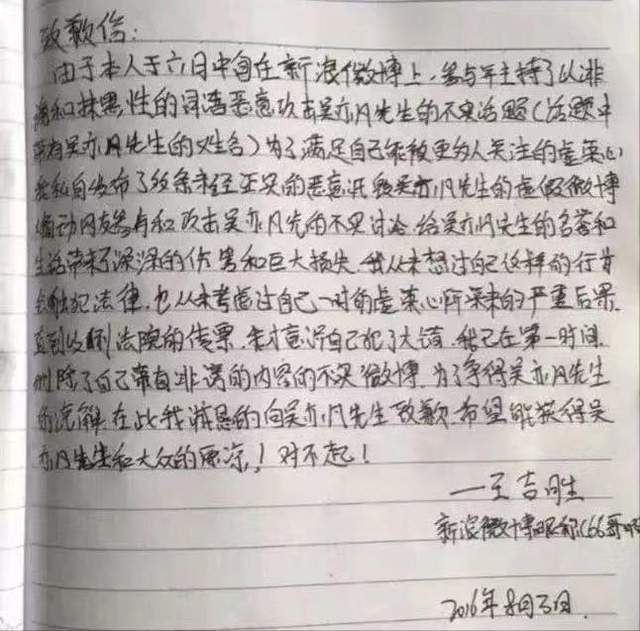 致歉信:
由于本人于六月中旬在新浪微博上,参与并主持了以诽
谤和抹黑性的词语恶意攻击吴亦凡先生的不实话题(话题中
带有吴亦凡先生的姓名)为了满足自己能被更多人关注的虚荣心
私自发布了 条未经证实的恶意诋毁吴亦凡先生的虚假微博
煽动网友参与和攻击吴亦凡先的不实讨论,给吴亦凡先生的名誉和
生活带来了深深的伤害和巨大损失.我从未想过自己这样的行为
会触犯法律,也从未考虑过自己一时的虚荣心所带来的严重后果
直到收到法院的传票,我才意识自己犯了大错.我已在第一时间,
删除了自己带有诽谤的内容的不实微博.为了争得吴亦凡先生
的谅解.在此我诚恳的向吴亦凡先生致歉.希望能获得吴
亦凡先生和大众的原谅,!对不起!
—王吉胜
新浪微博昵称(66哥
2016年8月3日.